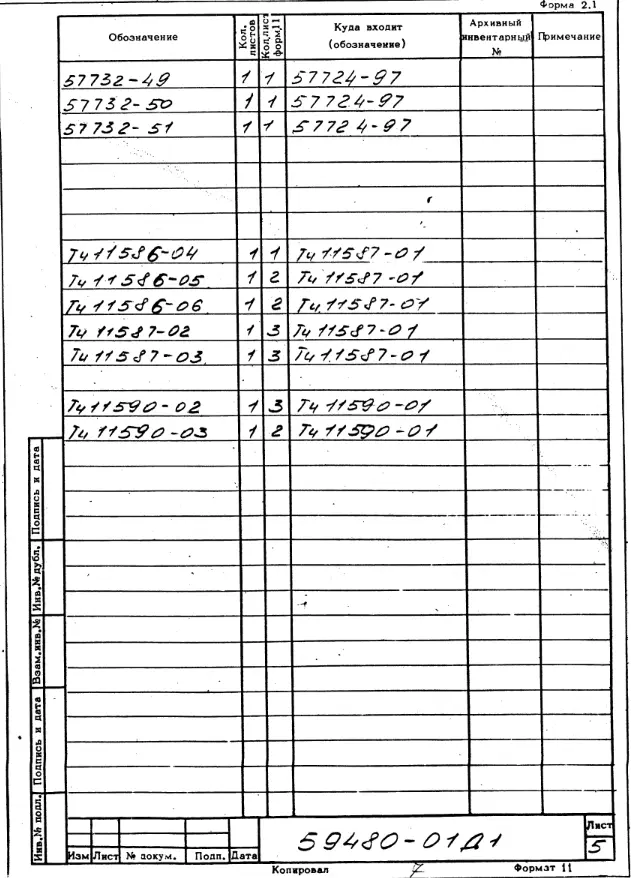 Форма 2.1
Обозначение Кол. листов Кол.лист форм.11 Куда входит (обозначение) Архивный инвентарный № Примечание
57732-49 1 1 57724-97
57732-50 1 1 57724-97
57732-51 1 1 57724-97
Тч 11586-04 1 1 Тч 11587-01
Тч 11586-05 1 2 Тч 11587-01
Тч 11586-06 1 2 Тч 11587-01
Тч 11587-02 1 3 Тч 11587-01
Тч 11587-03 1 3 Тч 11587-01
Тч 11590-02 1 3 Тч 11590-01
Тч 11590-03 1 2 Тч 11590-01
Подпись и дата
Инв.№ дубл.
Взам.инв.№
Подпись и дата
Инв.№ подл.
Изм Лист № докум. Подп. Дата
59480-01Д1
Лист
5
Копировал Формат 11